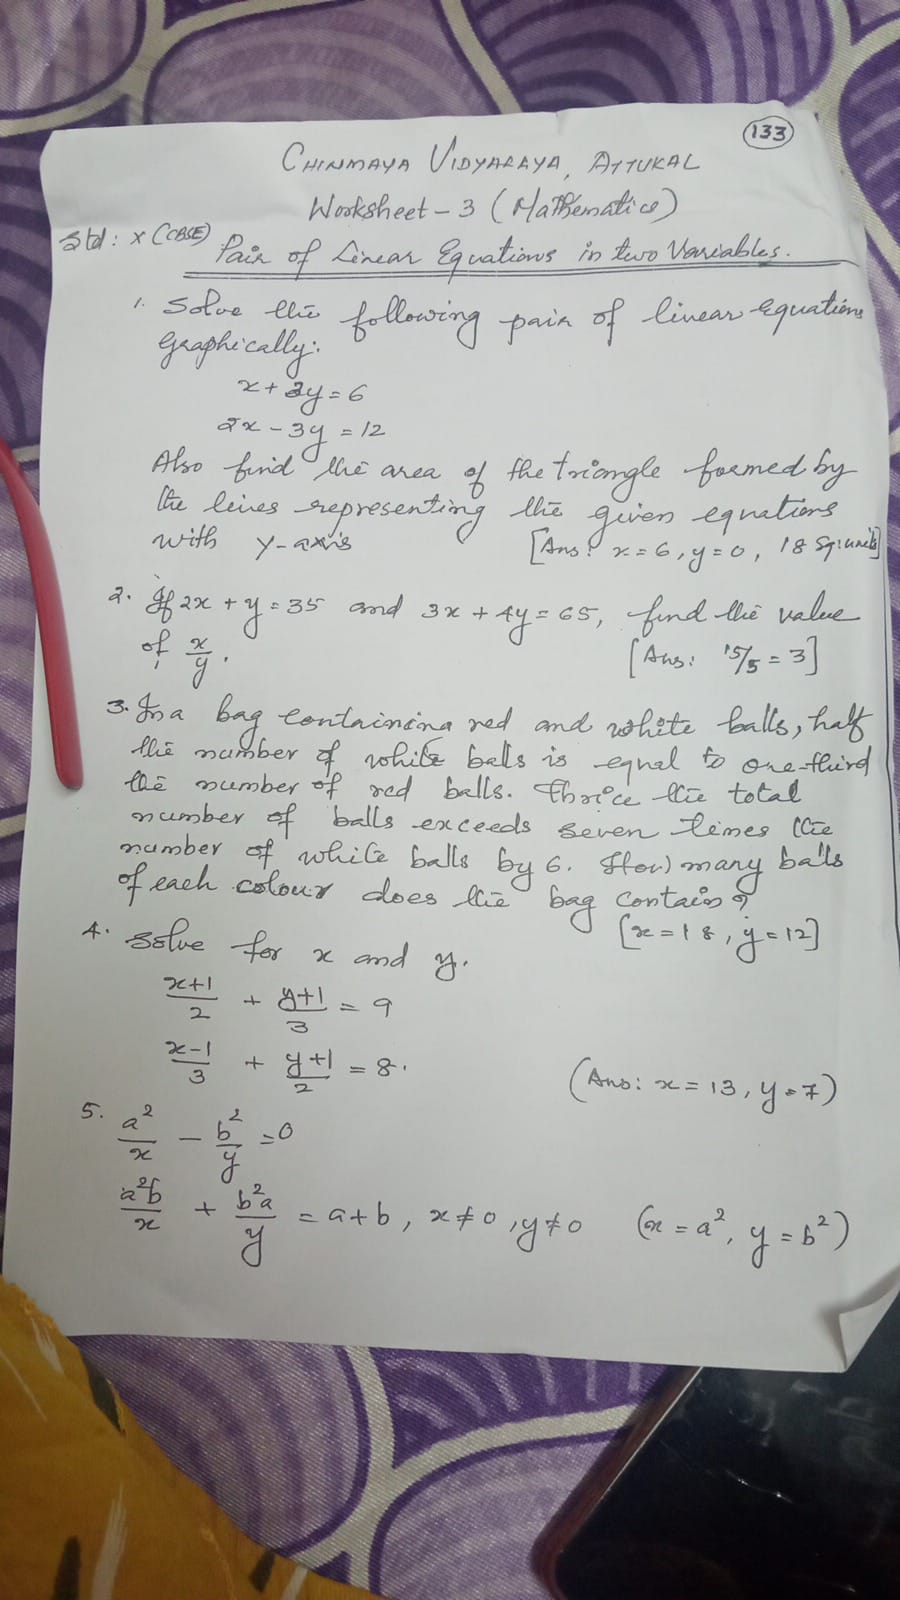 133
CHINMAYA VIDYALAYA, ATTUKAL
Worksheet - 3 (Mathematics)
Std: X (CBSE)
Pair of Linear Equations in two Variables.
1. Solve the following pair of linear equations
graphically:
x + 2y = 6
2x - 3y = 12
Also find the area of the triangle formed by
the lines representing the given equations
with y-axis [Ans: x = 6, y = 0, 18 sq. units]
2. If 2x + y = 35 and 3x + 4y = 65, find the value
of x/y. [Ans: 15/5 = 3]
3. In a bag containing red and white balls, half
the number of white balls is equal to one-third
the number of red balls. Thrice the total
number of balls exceeds seven times the
number of white balls by 6. How many balls
of each colour does the bag contain?
[x = 18, y = 12]
4. Solve for x and y.
(x+1)/2 + (y+1)/3 = 9
(x-1)/3 + (y+1)/2 = 8.
(Ans: x = 13, y = 7)
5. a²/x - b²/y = 0
a²b/x + b²a/y = a + b, x ≠ 0, y ≠ 0 (x = a², y = b²)